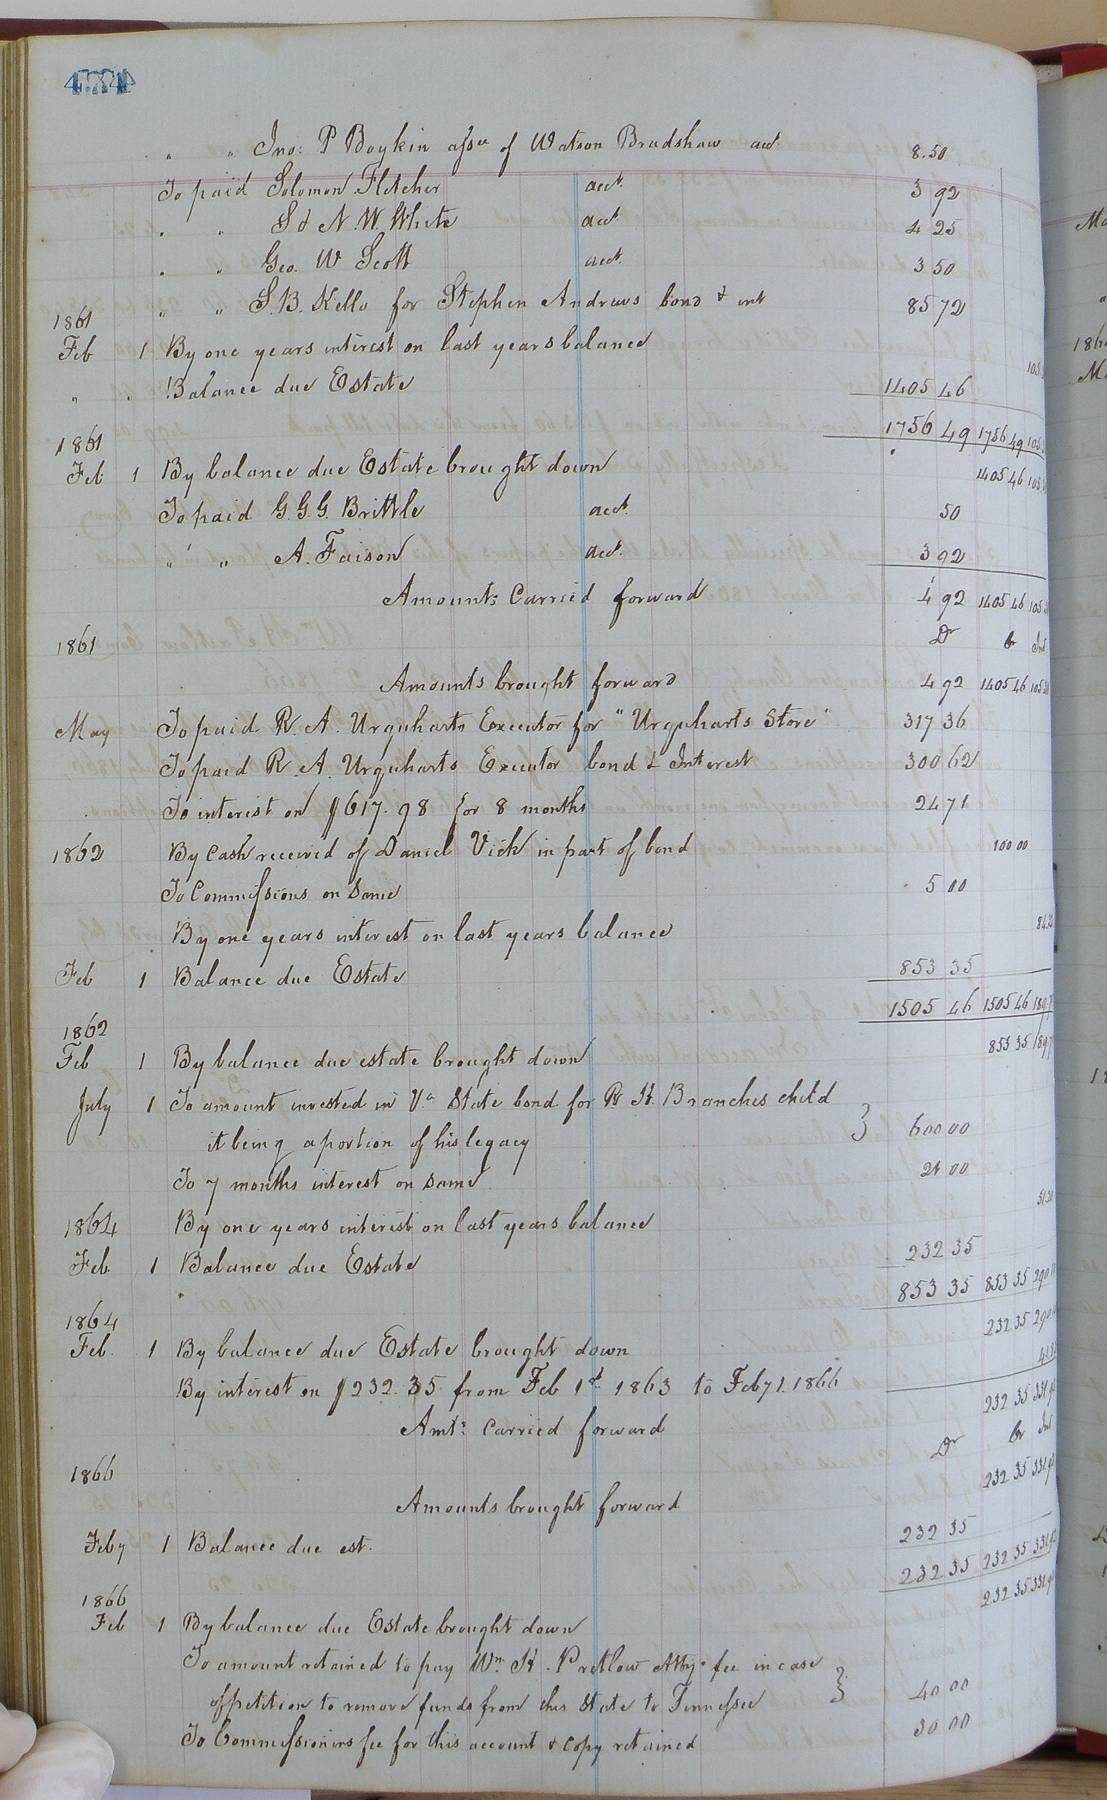 474
" " Jno: P Boykin assee of Watson Bradshaw act 8.50
To paid Solomon Fletcher acct. 3 92
" " S & N. W. White act. 4 25
" " Geo. W Scott acct. 3 50
" " S. B. Kello for Stephen Andrews bond & int 85 72
1861
Feb 1 By one years interest on last years balance 105
" " Balance due Estate 1405 46
1756 49 1756 49 105
1861
Feb 1 By balance due Estate brought down 1405 46 105
To paid G. G. G. Brittle acct. 50
" " A. Faison act. 3 92
Amounts Carried forward 4 92 1405 46 105
1861 Dr Cr Int
Amounts brought forward 4 92 1405 46 105
May To paid R. A. Urquharts Executor for "Urquharts Store" 317 36
To paid R. A. Urquharts Executor bond & Interest 300 62
To interest on $617.98 for 8 months 24 71
1862 By Cash received of Daniel Vick in part of bond 100 00
To Commissions on Same 5 00
By one years interest on last years balance 84
Feb 1 Balance due Estate 853 35
1505 46 1505 46 189
1862
Feb 1 By balance due estate brought down 853 35 189
July 1 To amount invested in Va State bond for R H. Branches child
it being a portion of his legacy } 600 00
To 7 months interest on same 21 00
1864 By one years interest on last years balance 51
Feb. 1 Balance due Estate 232 35
853 35 853 35 290
1864
Feb. 1 By balance due Estate brought down 232 35 290
By interest on $232.35 from Feb 1st 1863 to Feby 1. 1866 41
Amts carried forward 232 35 331
1866 Dr Cr Int
Amounts brought forward 232 35 331
Feby 1 Balance due est. 232 35
232 35 232 35 331
1866
Feb 1 By balance due Estate brought down 232 35 331
To amount retained to pay Wm H. Pretlow Atty. fee in case
of petition to remove funds from this State to Tennessee } 40 00
To Commissioners fee for this account & copy retained 30 00